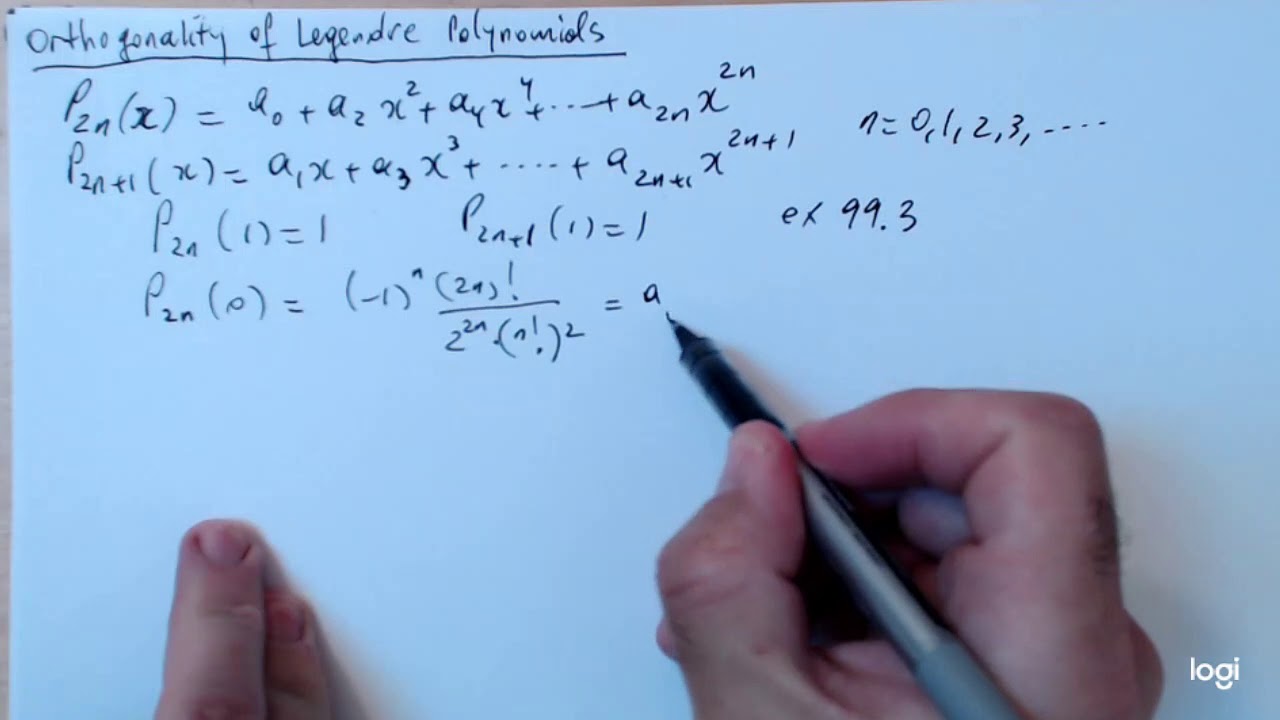 Orthogonality of Legendre Polynomials
P₂ₙ(x) = a₀ + a₂x² + a₄x⁴ + ⋯ + a₂ₙx²ⁿ
n = 0, 1, 2, 3, ....
P₂ₙ₊₁(x) = a₁x + a₃x³ + ⋯⋯ + a₂ₙ₊₁x²ⁿ⁺¹
P₂ₙ(1) = 1 P₂ₙ₊₁(1) = 1 ex 99.3
P₂ₙ(0) = (-1)ⁿ (2n)! / 2²ⁿ·(n!)² = a
logi